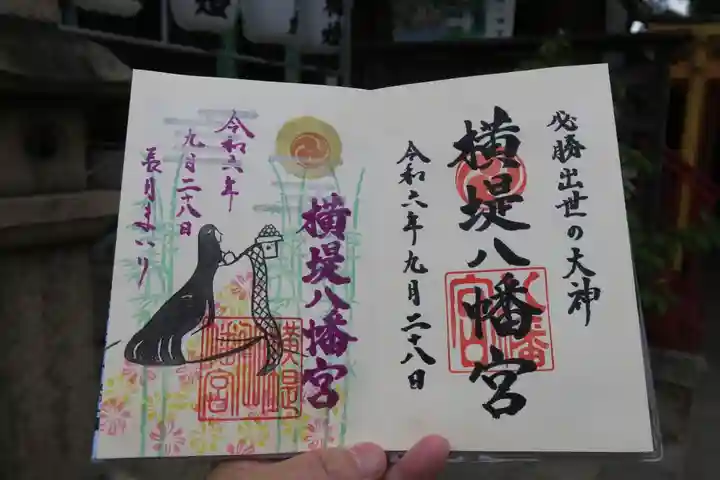 必勝出世の大神
横堤八幡宮
八幡宮
令和六年九月二十八日
横堤八幡宮
令和六年
九月二十八日
長月まいり